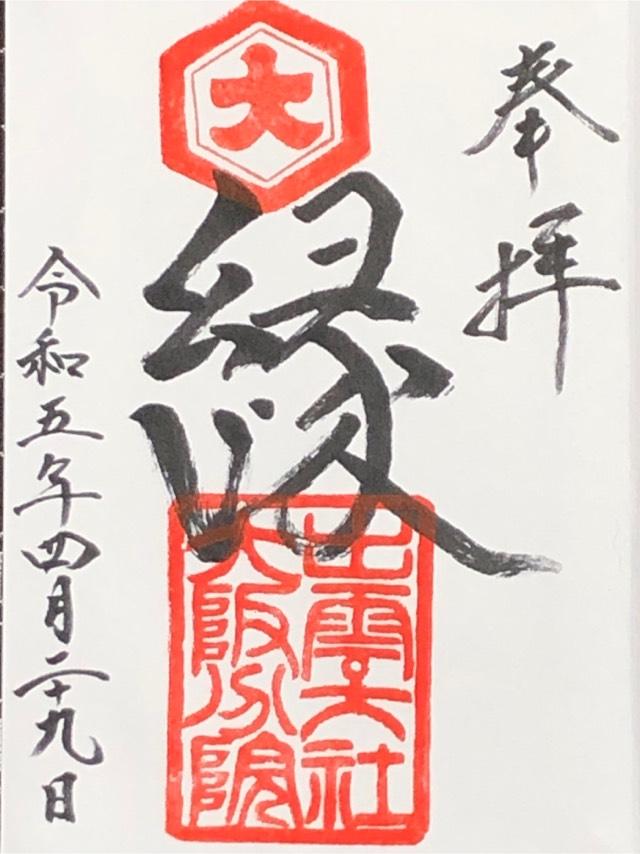 奉拝
大
縁
出雲大社
大阪分院
令和五年四月二十九日